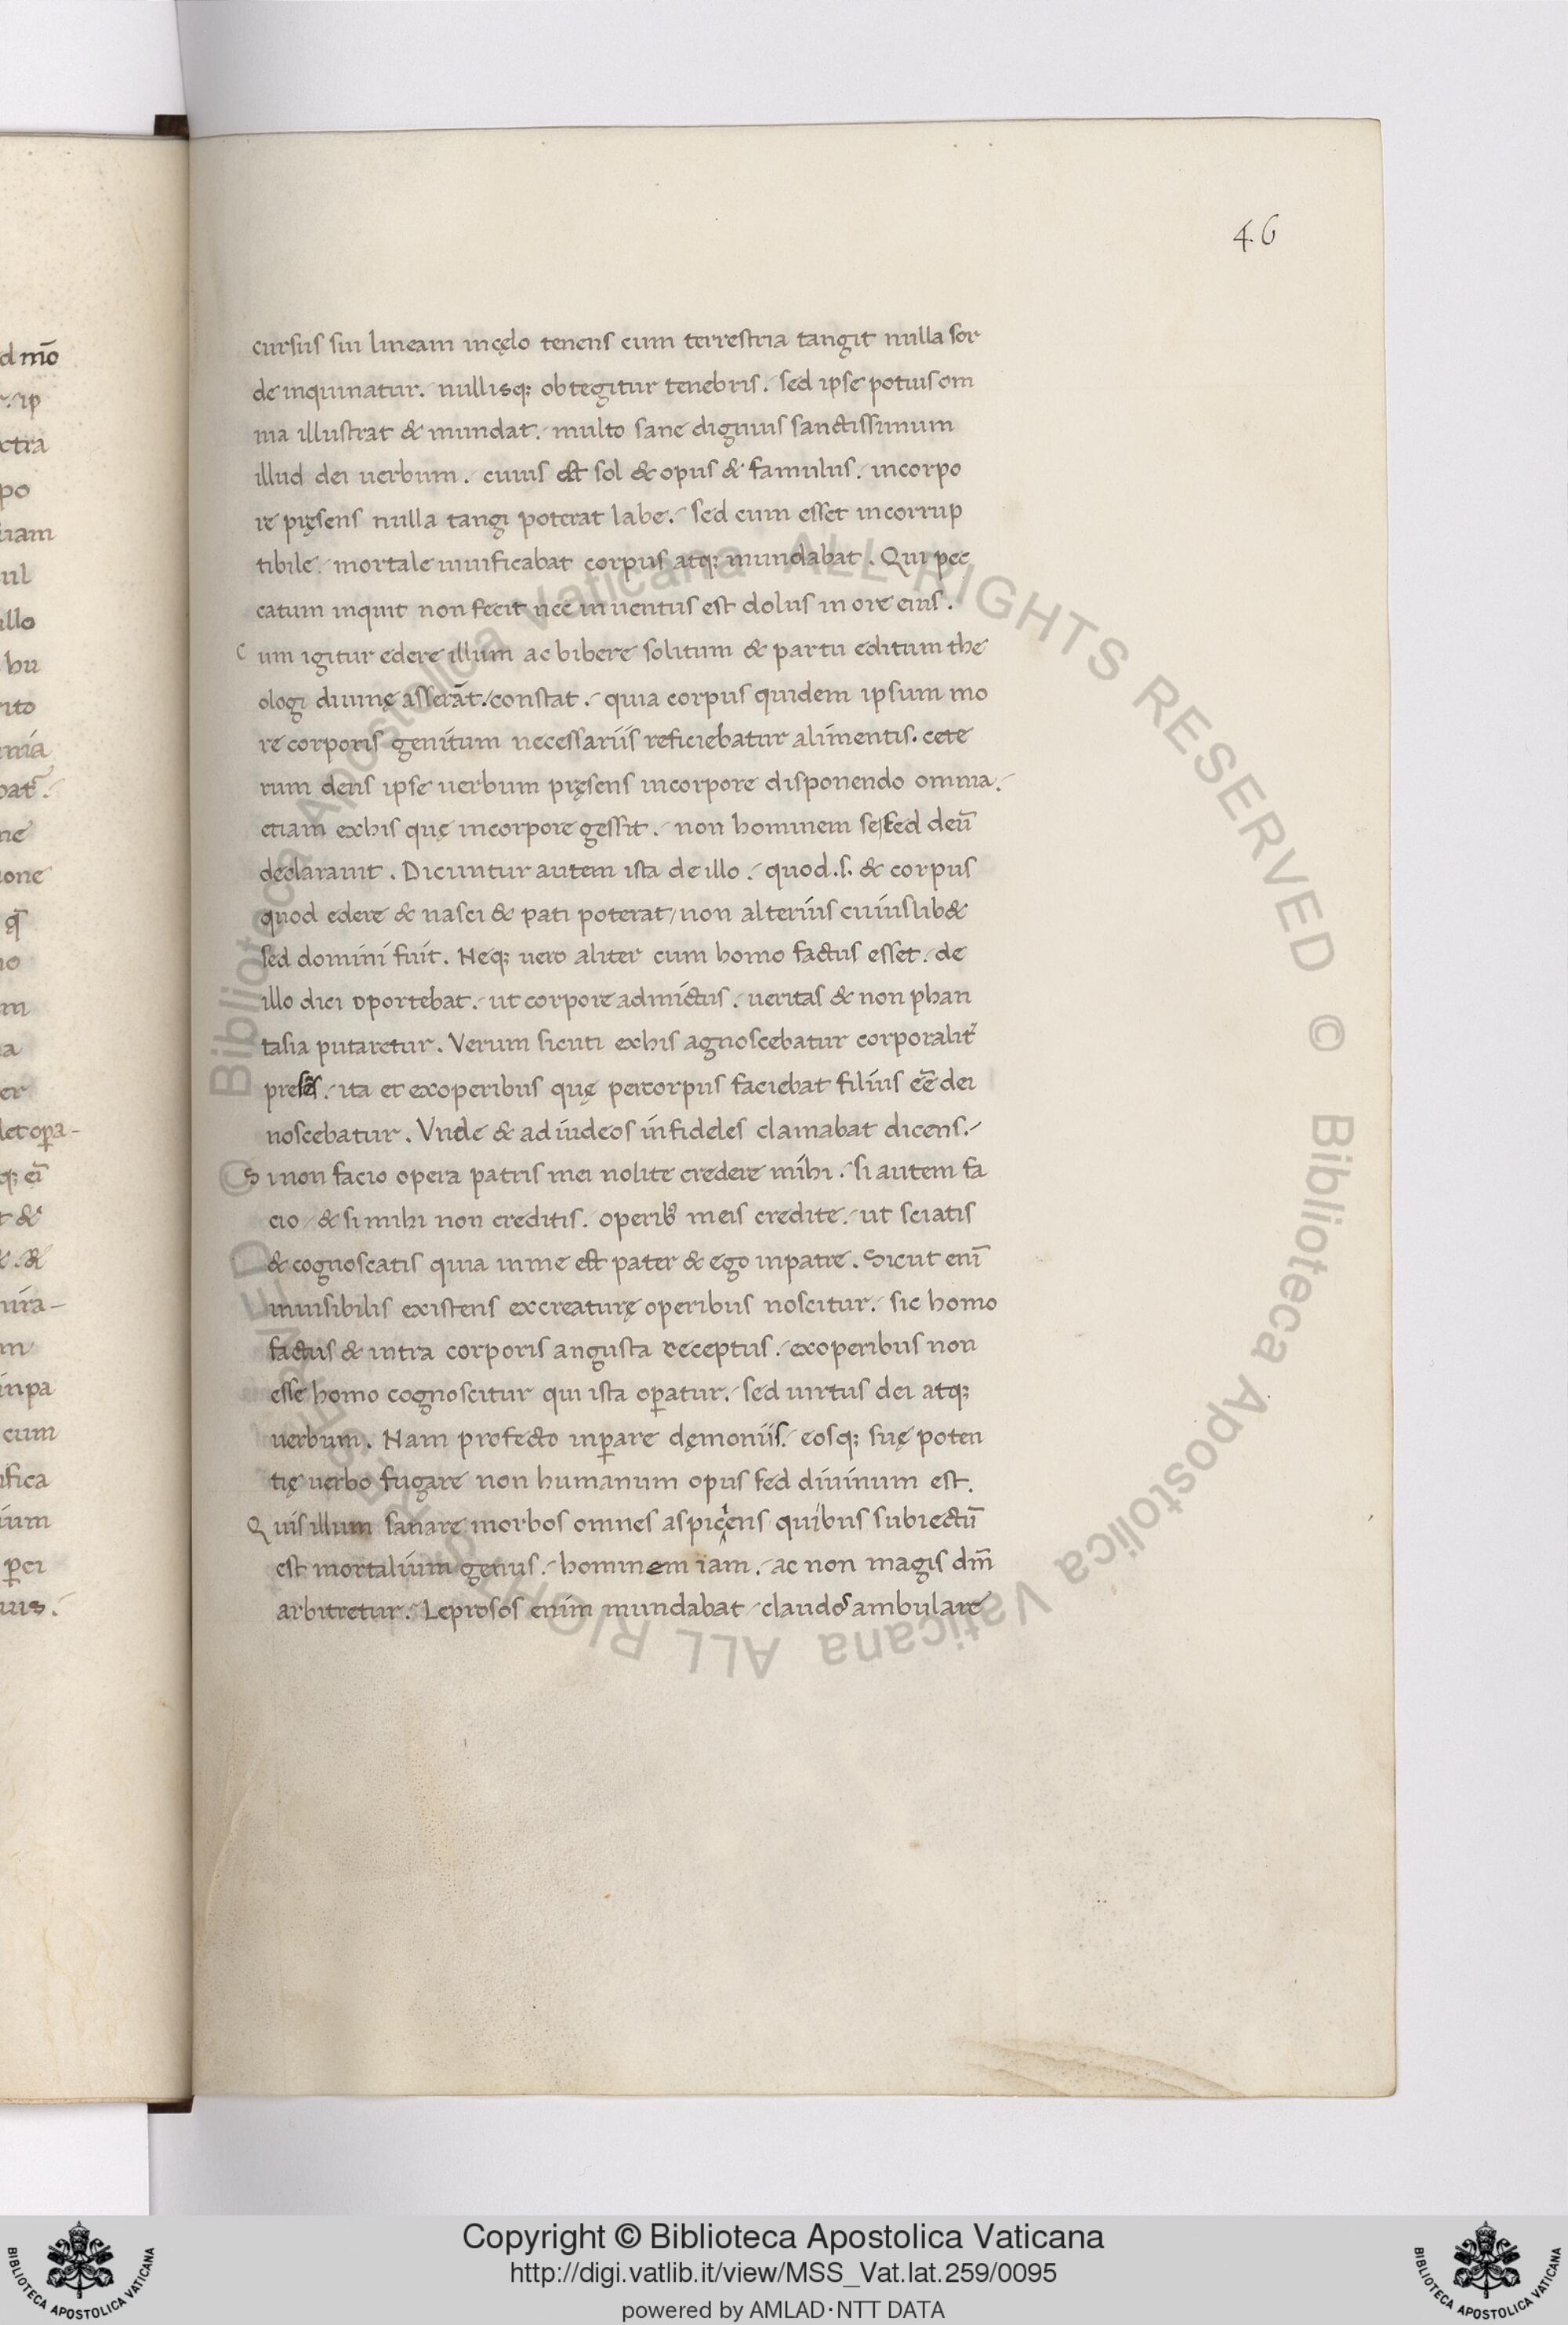 46
d m̄o
cursus sui lineam incęlo tenens cum terrestria tangit nulla sor
de inquinatur. nullisq; obtegitur tenebris. sed ipse potius om
nia illustrat & mundat. multo sane dignius sanctissimum
illud dei uerbum. cuius est sol & opus & famulus. incorpo
re pręsens nulla tangi poterat labe. sed cum esset incorrup
tibile. mortale uiuificabat corpus atq; mundabat. Qui pec
catum inquit non fecit nec inuentus est dolus in ore eius.
Cum igitur edere illum ac bibere solitum & partu editum the
ologi diuinę asserāt. constat. quia corpus quidem ipsum mo
re corporis genitum necessariis reficiebatur alimentis. cete
rum deus ipse uerbum pręsens incorpore disponendo omnia.
etiam exhis quę incorpore gessit. non hominem se sed deū
declarauit. Dicuntur autem ista de illo. quod .s. & corpus
quod edere & nasci & pati poterat/ non alterius cuiuslib&
sed domini fuit. Neq; uero aliter cum homo factus esset. de
illo dici oportebat. ut corpore admictus. ueritas & non phan
tasia putaretur. Verum sicuti exhis agnoscebatur corporalit̄
presēs. ita et exoperibus quę percorpus faciebat filius eē dei
noscebatur. Vnde & ad iudeos infideles clamabat dicens.
Si non facio opera patris mei nolite credere mihi. si autem fa
cio & si mihi non creditis. operib; meis credite. ut sciatis
& cognoscatis quia inme est pater & ego inpatre. Sicut enī
inuisibilis existens excreaturę operibus noscitur. sic homo
factus & intra corporis angusta receptus. exoperibus non
esse homo cognoscitur qui ista op̄atur. sed uirtus dei atq;
uerbum. Nam profecto inp̄are dęmoniis. eosq; suę poten
tię uerbo fugare non humanum opus sed diuinum est.
Quis illum sanare morbos omnes aspiciens quibus subiectū
est mortalium genus. hominem iam. ac non magis dm̄
arbitretur. Leprosos enim mundabat claudos ambulare
© Biblioteca Apostolica Vaticana ALL RIGHTS RESERVED © Biblioteca Apostolica Vaticana ALL RIGHTS RESERVED
BIBLIOTECA APOSTOLICA VATICANA
Copyright © Biblioteca Apostolica Vaticana
http://digi.vatlib.it/view/MSS_Vat.lat.259/0095
powered by AMLAD·NTT DATA
BIBLIOTECA APOSTOLICA VATICANA